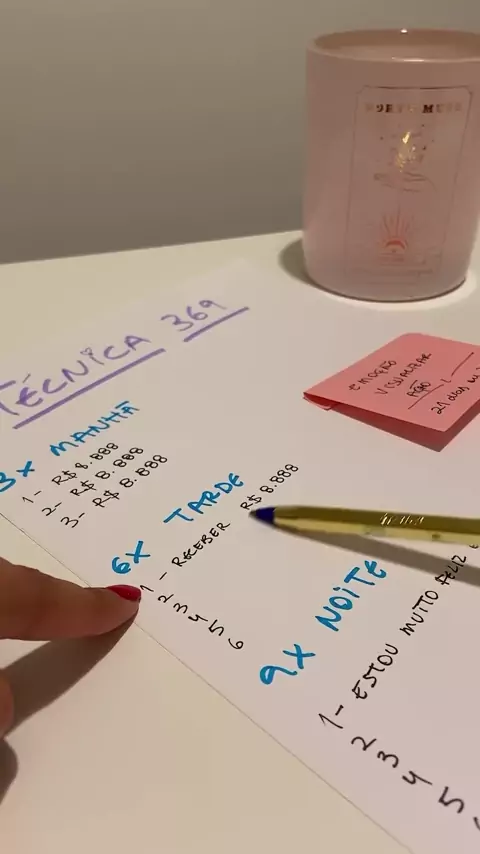 TÉCNICA 369
3X MANHÃ
1- R$ 8.888
2- R$ 8.888
3- R$ 8.888
6X TARDE
1- RECEBER R$ 8.888
2
3
4
5
6
9X NOITE
1- ESTOU MUITO FELIZ E
2
3
4
5
EMOÇÃO
VISUALIZAR
AÇÃO
21 dias